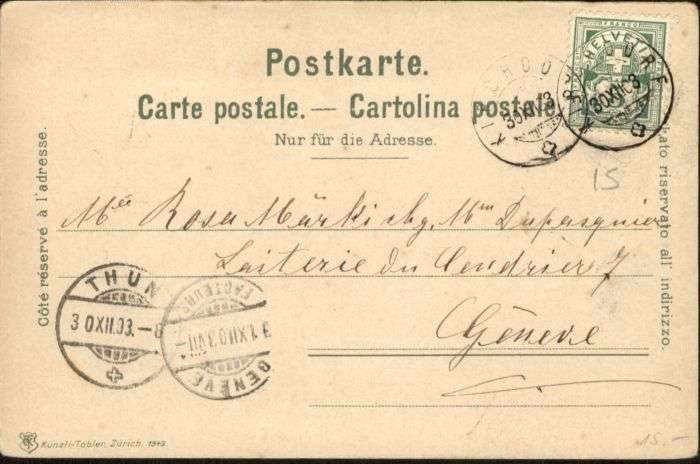 Postkarte.
Carte postale. — Cartolina postale.
Nur für die Adresse.
Côté réservé à l'adresse.
riservato all' indirizzo.
FRANCO
HELVETIA
30XII03
30XII03
15
Mlle Rosa Märki chez Mme Dupasquier
Laiterie du Cendrier 7
Genève
THUN
30XII.03.-8
FACTEURS
31.XII.03.VII-
GENÈVE
Künzli-Tobler, Zürich. 1943.
15.-